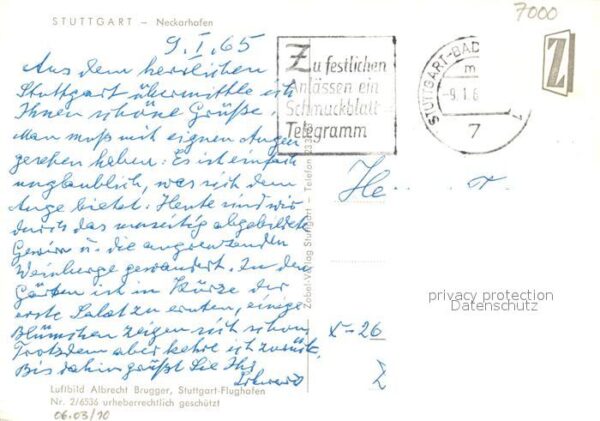 STUTTGART – Neckarhafen
7000
9.I.65
Aus dem herrlichen
Stuttgart übermittle ich
Ihnen schöne Grüße.
Man muß mit eignen Augen
gesehen haben: Es ist einfach
unglaublich, was sich dem
Auge bietet. Heute sind wir
durch das umseitig abgebildete
Gewirr u. die angrenzenden
Weinberge gewandert. In den
Gärten ist in Kürze der
erste Salat zu ernten, einige
Blümchen zeigen sich schon.
Trotzdem aber kehre ich zurück.
Bis dahin grüßt Sie Ihr
Luftbild Albrecht Brugger, Stuttgart-Flughafen
Nr. 2/6536 urheberrechtlich geschützt
06.03/10
Zu festlichen
Anlässen ein
Schmuckblatt-
Telegramm
STUTTGART-BAD
m
-9.1.6
7
1
Z
Zobel-Verlag Stuttgart – Telefon
He
r
privacy protection
Datenschutz
x-26
Z